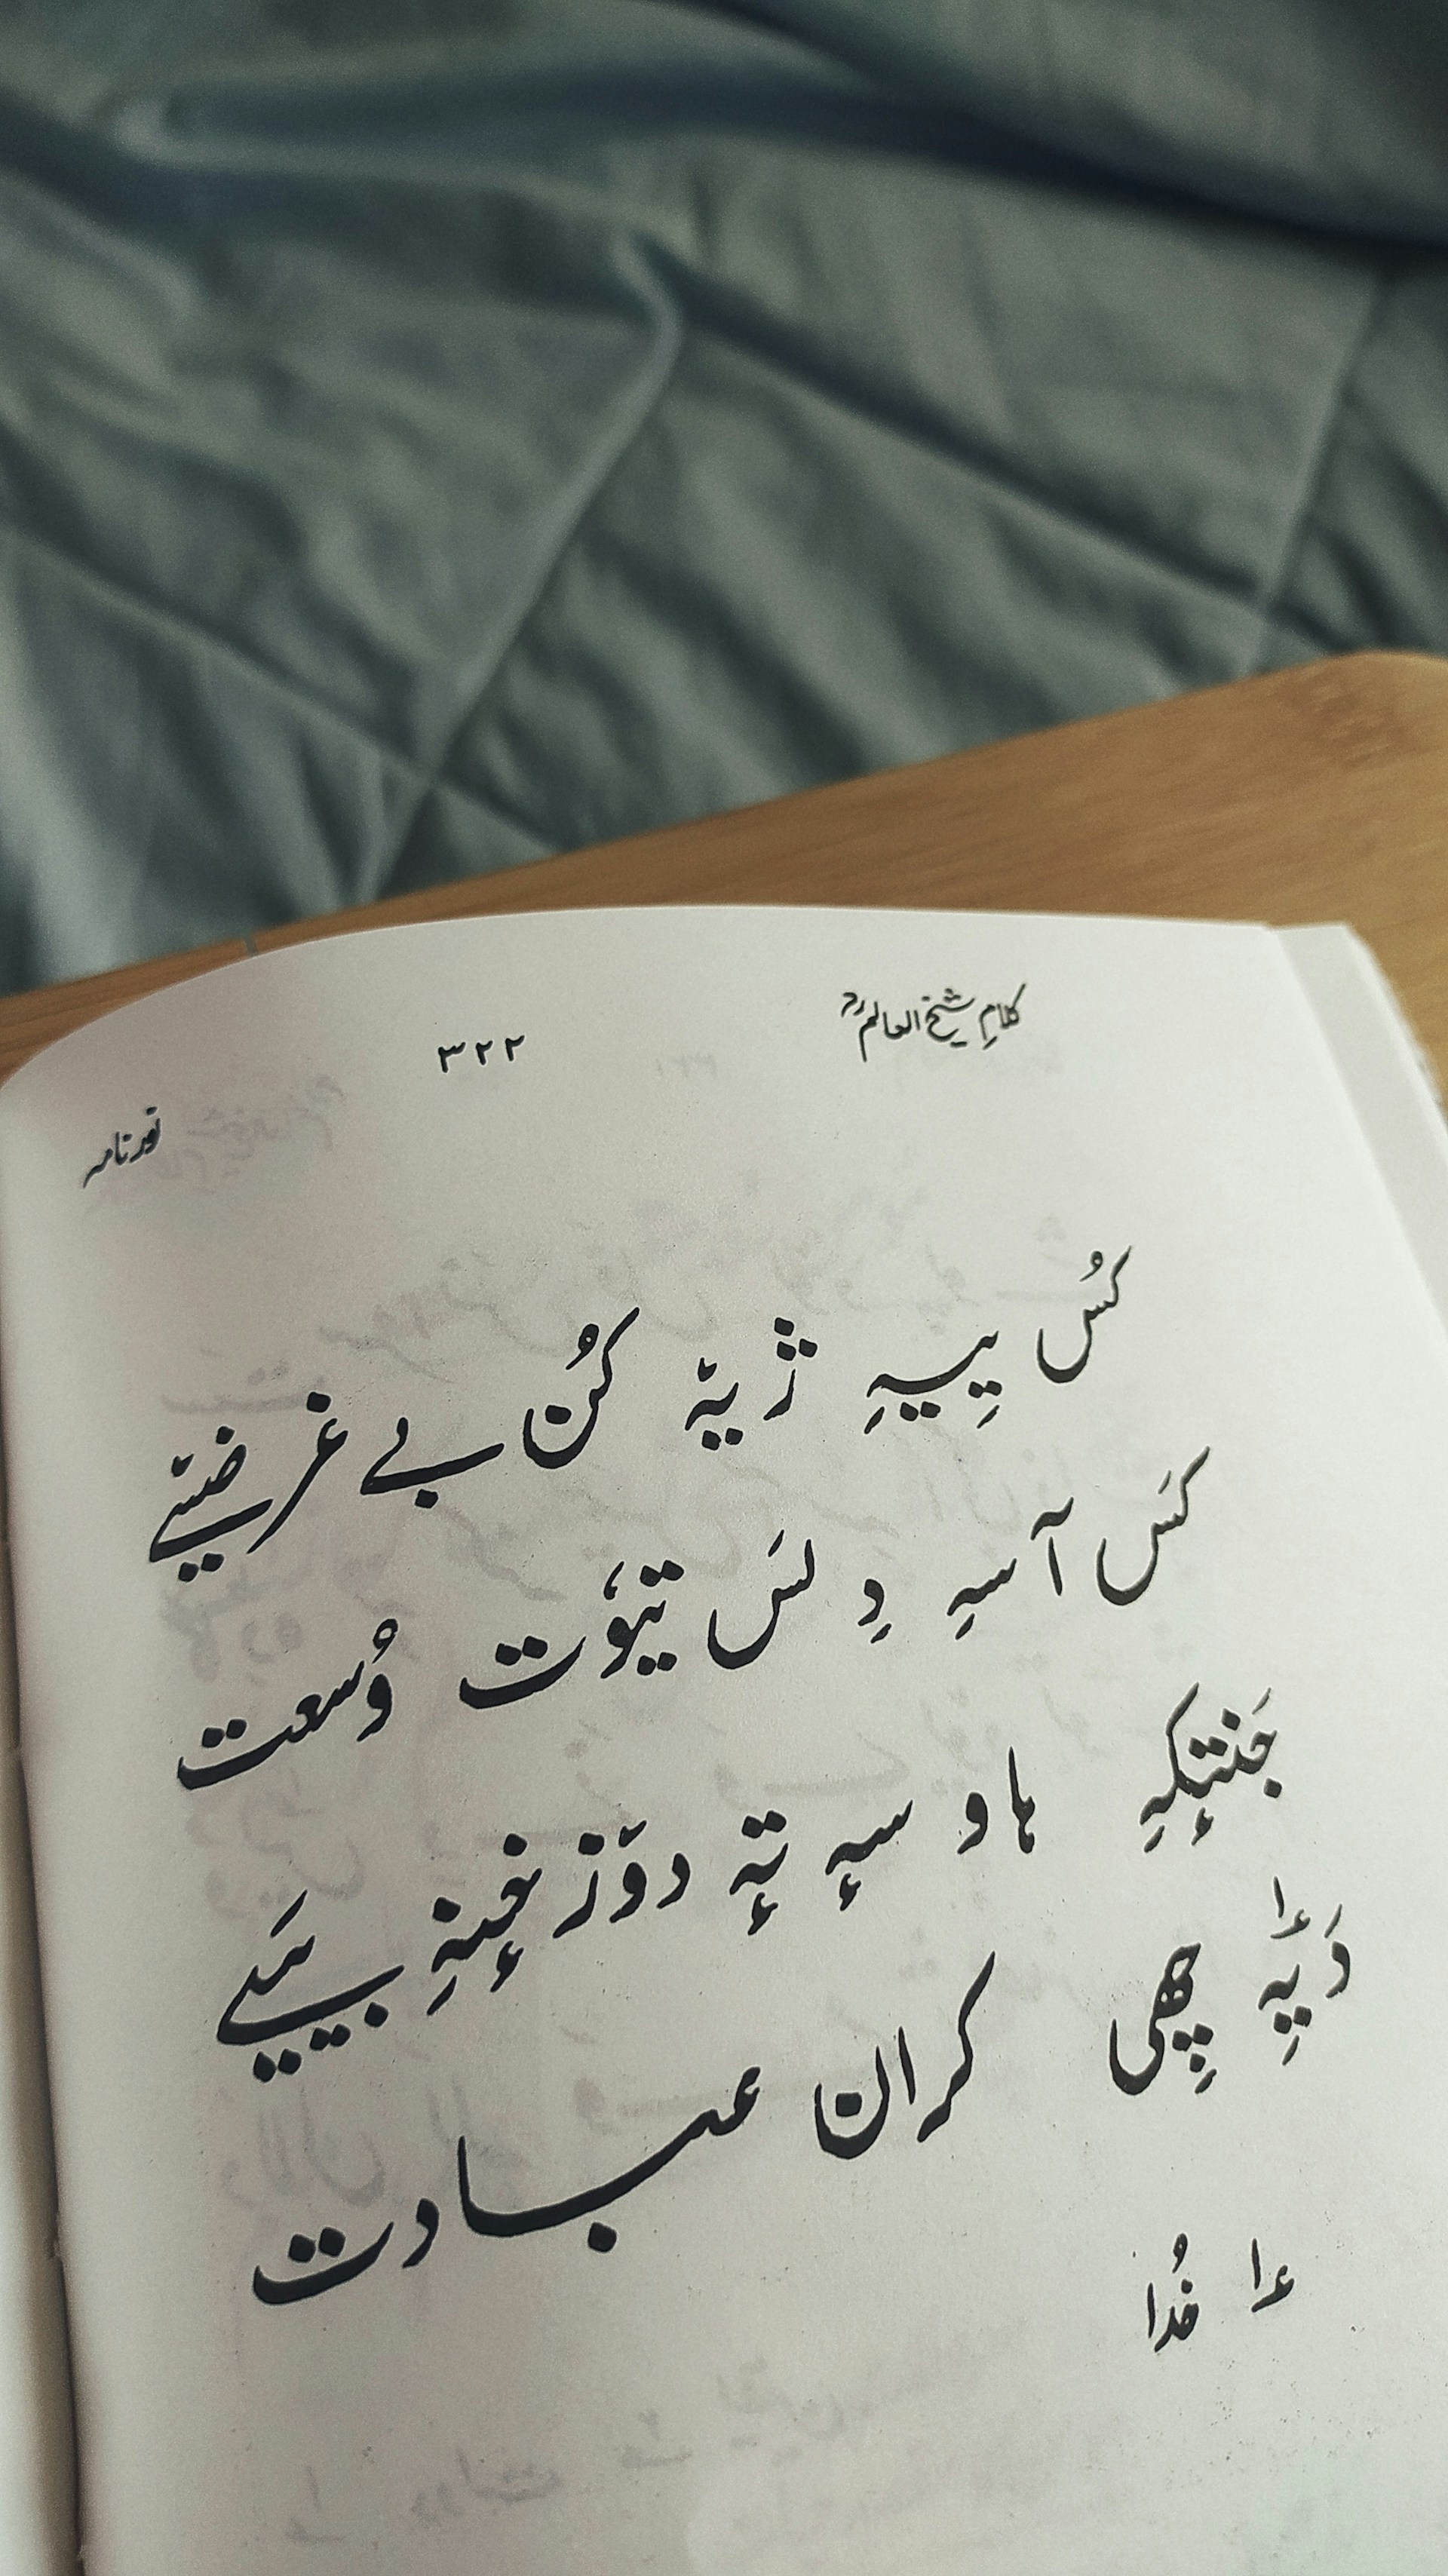 کلامِ شیخ العالمؒ ۳۲۲ نورنامہ
کُس یِیہِ ژیہٚ کُن بے غرضیٚے
کَس آسہِ دِلَس تیوٗت وُسعت
جَنتٕکہِ ہاوسہٕ تہٕ دوٚزخٕنہِ بییَے
دَپہِ چھِی کران عبادت
؏۱ خُدا